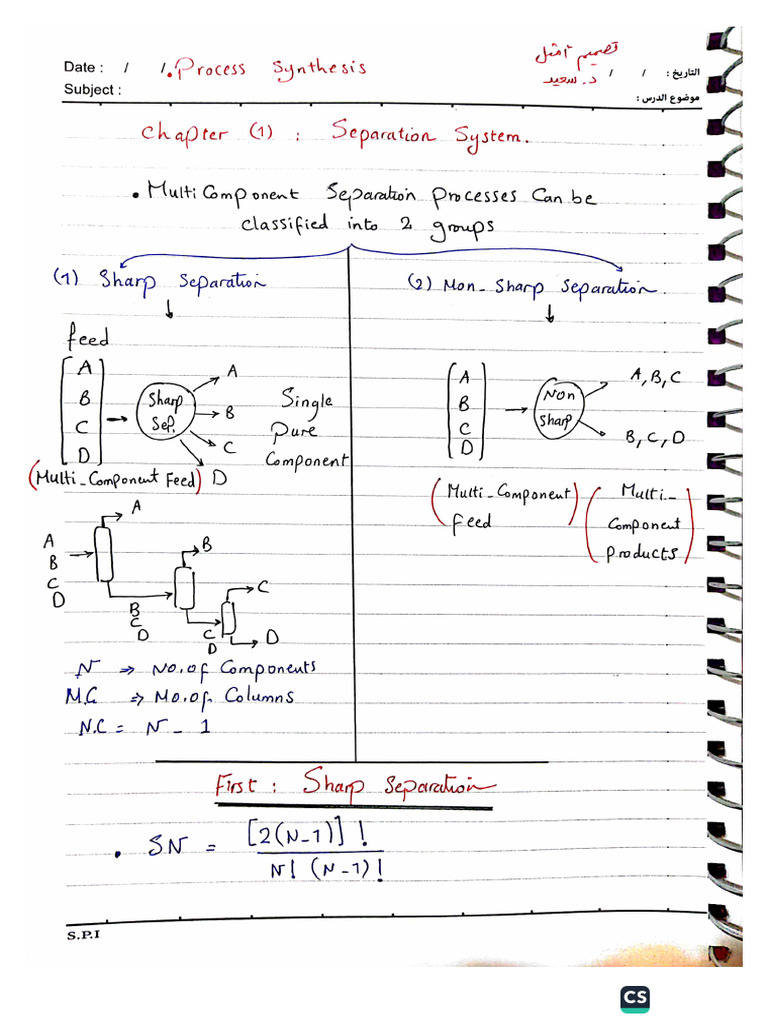 Date : / /
.Process Synthesis
تصميم أمثل
د. سعيد
التاريخ : / /
Subject :
موضوع الدرس :
Chapter (1) : Separation System.
• Multi Component Separation processes Can be
classified into 2 groups
(1) Sharp Separation
feed
A
B
C
D
Sharp
Sep.
A
B
C
D
Single
Pure
Component
(Multi_Component Feed)
A
B
C
D
A
B
C
D
B
C
D
C
D
N ⇒ No. of Components
N.C ⇒ No. of Columns
N.C = N - 1
(2) Non_Sharp Separation
A
B
C
D
Non
sharp
A, B, C
B, C, D
(Multi_Component
Feed)
(Multi_
Component
products)
First : Sharp Separation
• SN = [2(N-1)]! / N! (N-1)!
S.P.I
CS